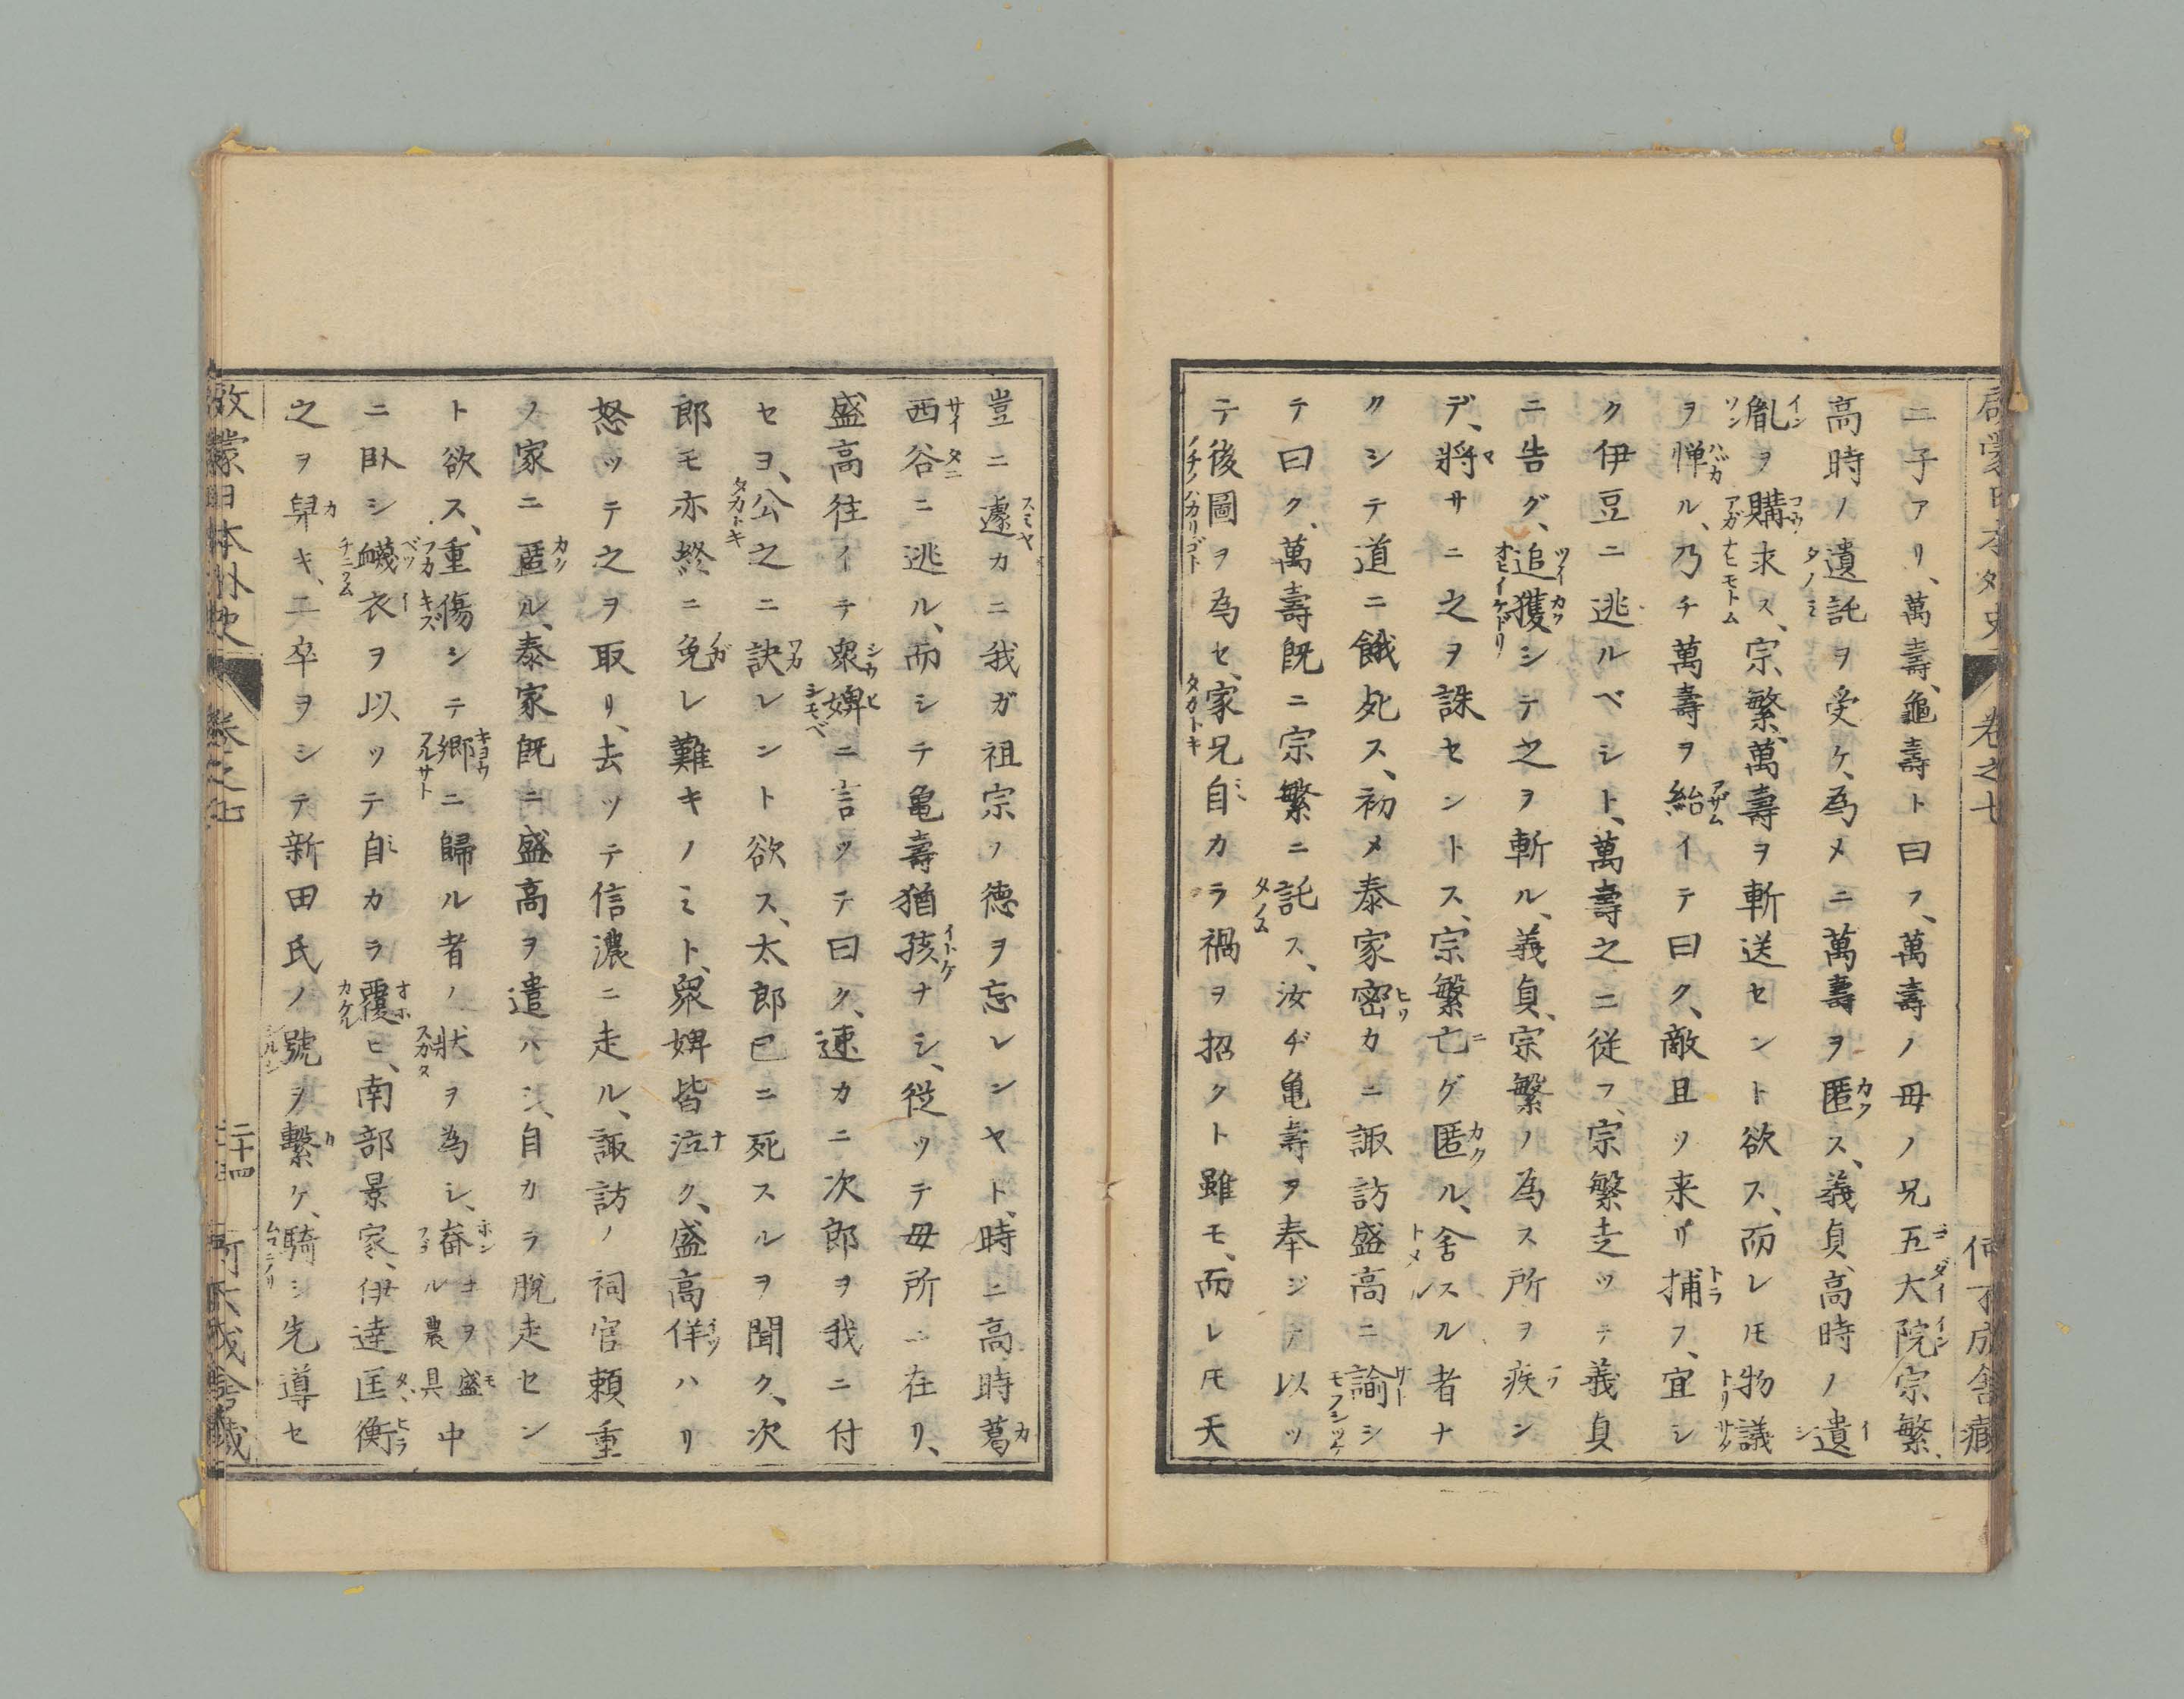 二子アリ、萬壽、龜壽ト曰フ、萬壽ノ母ノ兄五大院宗繁、
高時ノ遺託ヲ受ケ、為メニ萬壽ヲ匿ス、義貞、高時ノ遺
胤ヲ購求ス、宗繁、萬壽ヲ斬送セント欲ス、而レ𪜈物議
ヲ憚ル、乃チ萬壽ヲ紿イテ曰ク、敵且ツ来リ捕フ、宜シ
ク伊豆ニ逃ルベシト、萬壽之ニ従フ、宗繁走ツテ義貞
ニ告グ、追獲シテ之ヲ斬ル、義貞、宗繁ノ為ス所ヲ疾ン
デ、將サニ之ヲ誅セントス、宗繁亡グ匿ル、舍スル者ナ
クシテ道ニ餓死ス、初メ泰家密カニ諏訪盛高ニ諭シ
テ曰ク、萬壽既ニ宗繁ニ託ス、汝ヂ亀壽ヲ奉ジテ以ツ
テ後圖ヲ為セ、家兄自カラ禍ヲ招クト雖モ、而レ𪜈天
豈ニ遽カニ我ガ祖宗ノ德ヲ忘レンヤト、時ニ高時葛
西谷ニ逃ル、而シテ亀壽猶孩ナシ、從ツテ母所ニ在リ、
盛高往イテ衆婢ニ言ツテ曰ク、速カニ次郎ヲ我ニ付
セヨ、公之ニ訣レント欲ス、太郎已ニ死スルヲ聞ク、次
郎モ亦終ニ免レ難キノミト、衆婢皆泣ク、盛高佯ハリ
怒ツテ之ヲ取リ、去ツテ信濃ニ走ル、諏訪ノ祠官頼重
ノ家ニ匿ル、泰家既ニ盛高ヲ遣ハシ、自カラ脫走セン
ト欲ス、重傷シテ郷ニ歸ル者ノ狀ヲ為シ、畚ヲ盛中
ニ臥シ衊衣ヲ以ツテ自カラ覆ヒ、南部景家、伊達匡衡
之ヲ舁キ、二卒ヲシテ新田氏ノ號ヲ繫ケ、騎シ先導セ
卷之七
二十四